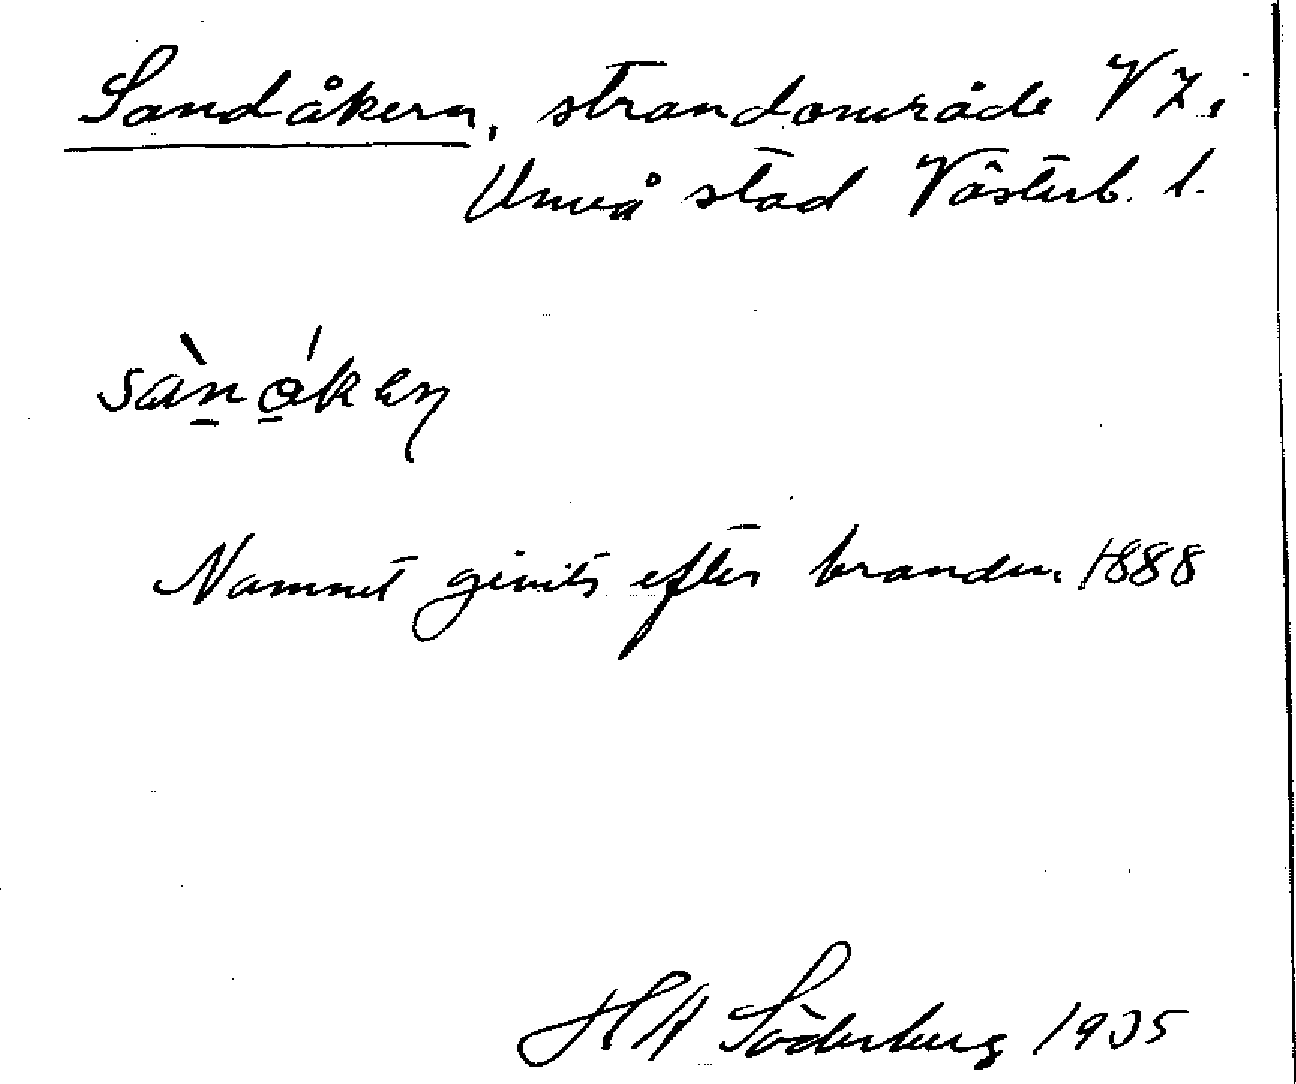 Sandåkern, strandområde V I i
Umeå stad Västerb. l.
Namnet givits efter branden 1888
H A Söderberg 1935